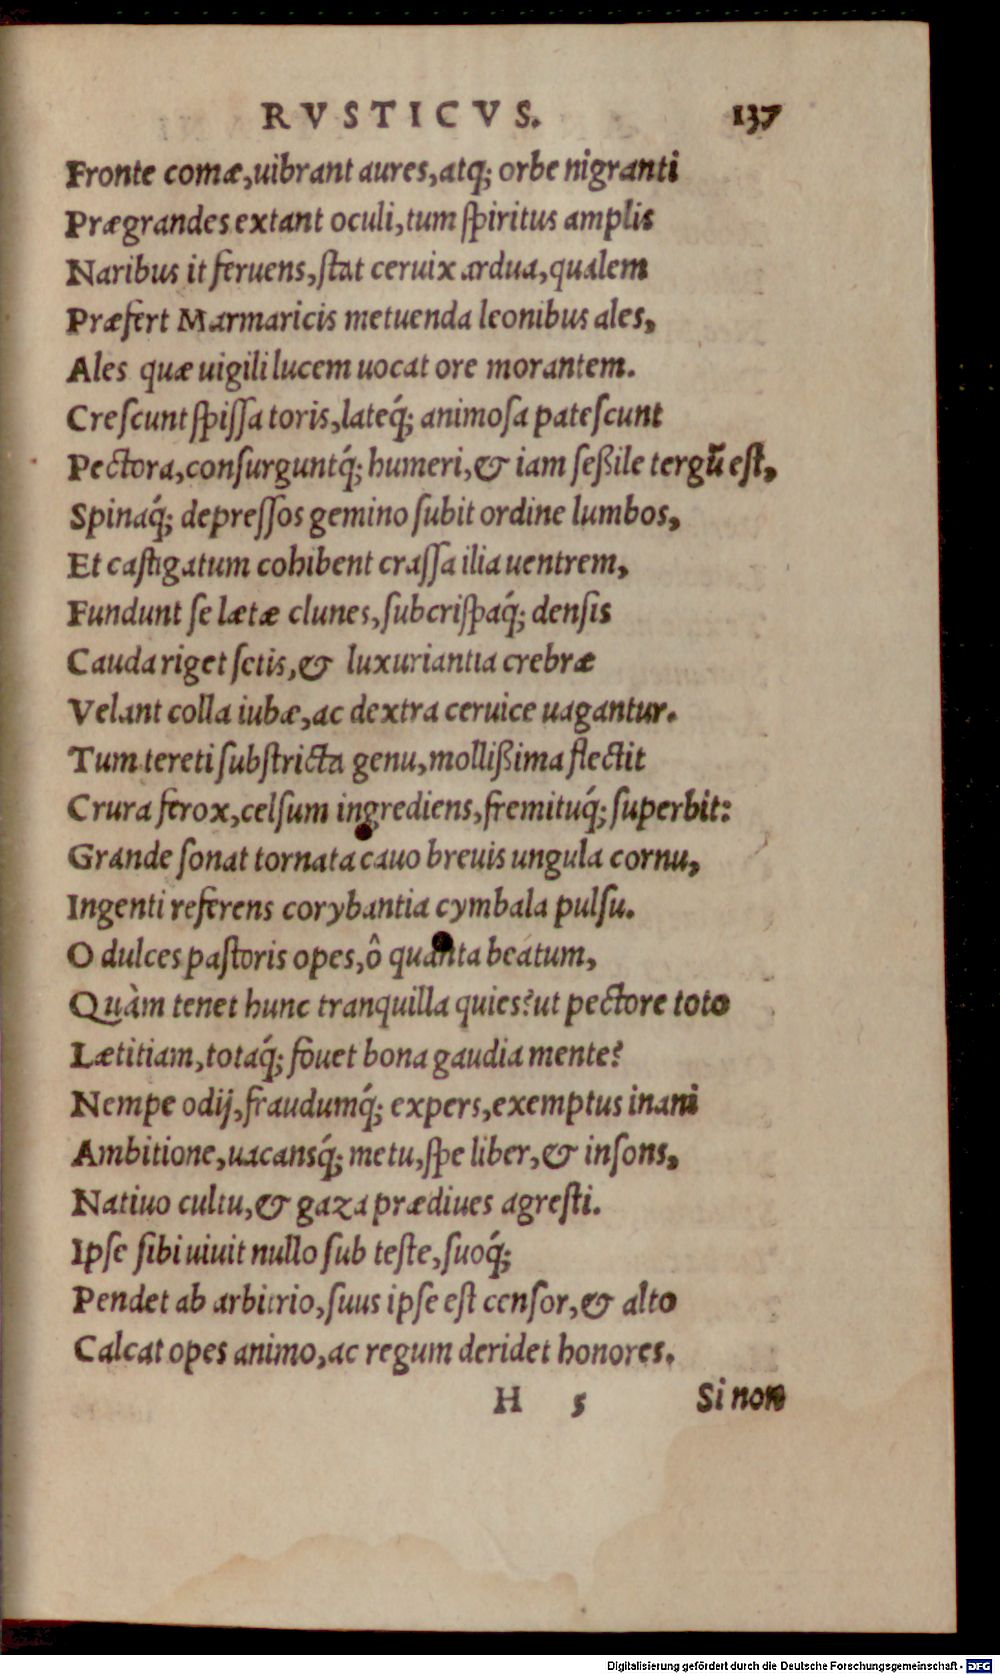 RVSTICVS. 137
Fronte comæ,uibrant aures,atq; orbe nigranti
Prægrandes extant oculi,tum ſpiritus amplis
Naribus it feruens,ſtat ceruix ardua,qualem
Præfert Marmaricis metuenda leonibus ales,
Ales quæ uigili lucem uocat ore morantem.
Creſcunt ſpiſſa toris,lateq́; animoſa pateſcunt
Pectora,conſurguntq́; humeri,& iam ſeßile tergũ eſt,
Spinaq́; depreſſos gemino ſubit ordine lumbos,
Et caſtigatum cohibent craſſa ilia uentrem,
Fundunt ſe lætæ clunes,ſubcriſpaq́; denſis
Cauda riget ſetis,& luxuriantia crebræ
Velant colla iubæ,ac dextra ceruice uagantur.
Tum tereti ſubſtricta genu,mollißima flectit
Crura ferox,celſum ingrediens,fremituq́; ſuperbit:
Grande ſonat tornata cauo breuis ungula cornu,
Ingenti referens corybantia cymbala pulſu.
O dulces paſtoris opes,ô quanta beatum,
Quàm tenet hunc tranquilla quies?ut pectore toto
Lætitiam,totaq́; fouet bona gaudia mente?
Nempe odij,fraudumq́; expers,exemptus inani
Ambitione,uacansq́; metu,ſpe liber,& inſons,
Natiuo cultu,& gaza prædiues agreſti.
Ipſe ſibi uiuit nullo ſub teſte,ſuoq́;
Pendet ab arbitrio,ſuus ipſe eſt cenſor,& alto
Calcat opes animo,ac regum deridet honores.
H 5 Si non
Digitalisierung gefördert durch die Deutsche Forschungsgemeinschaft - DFG